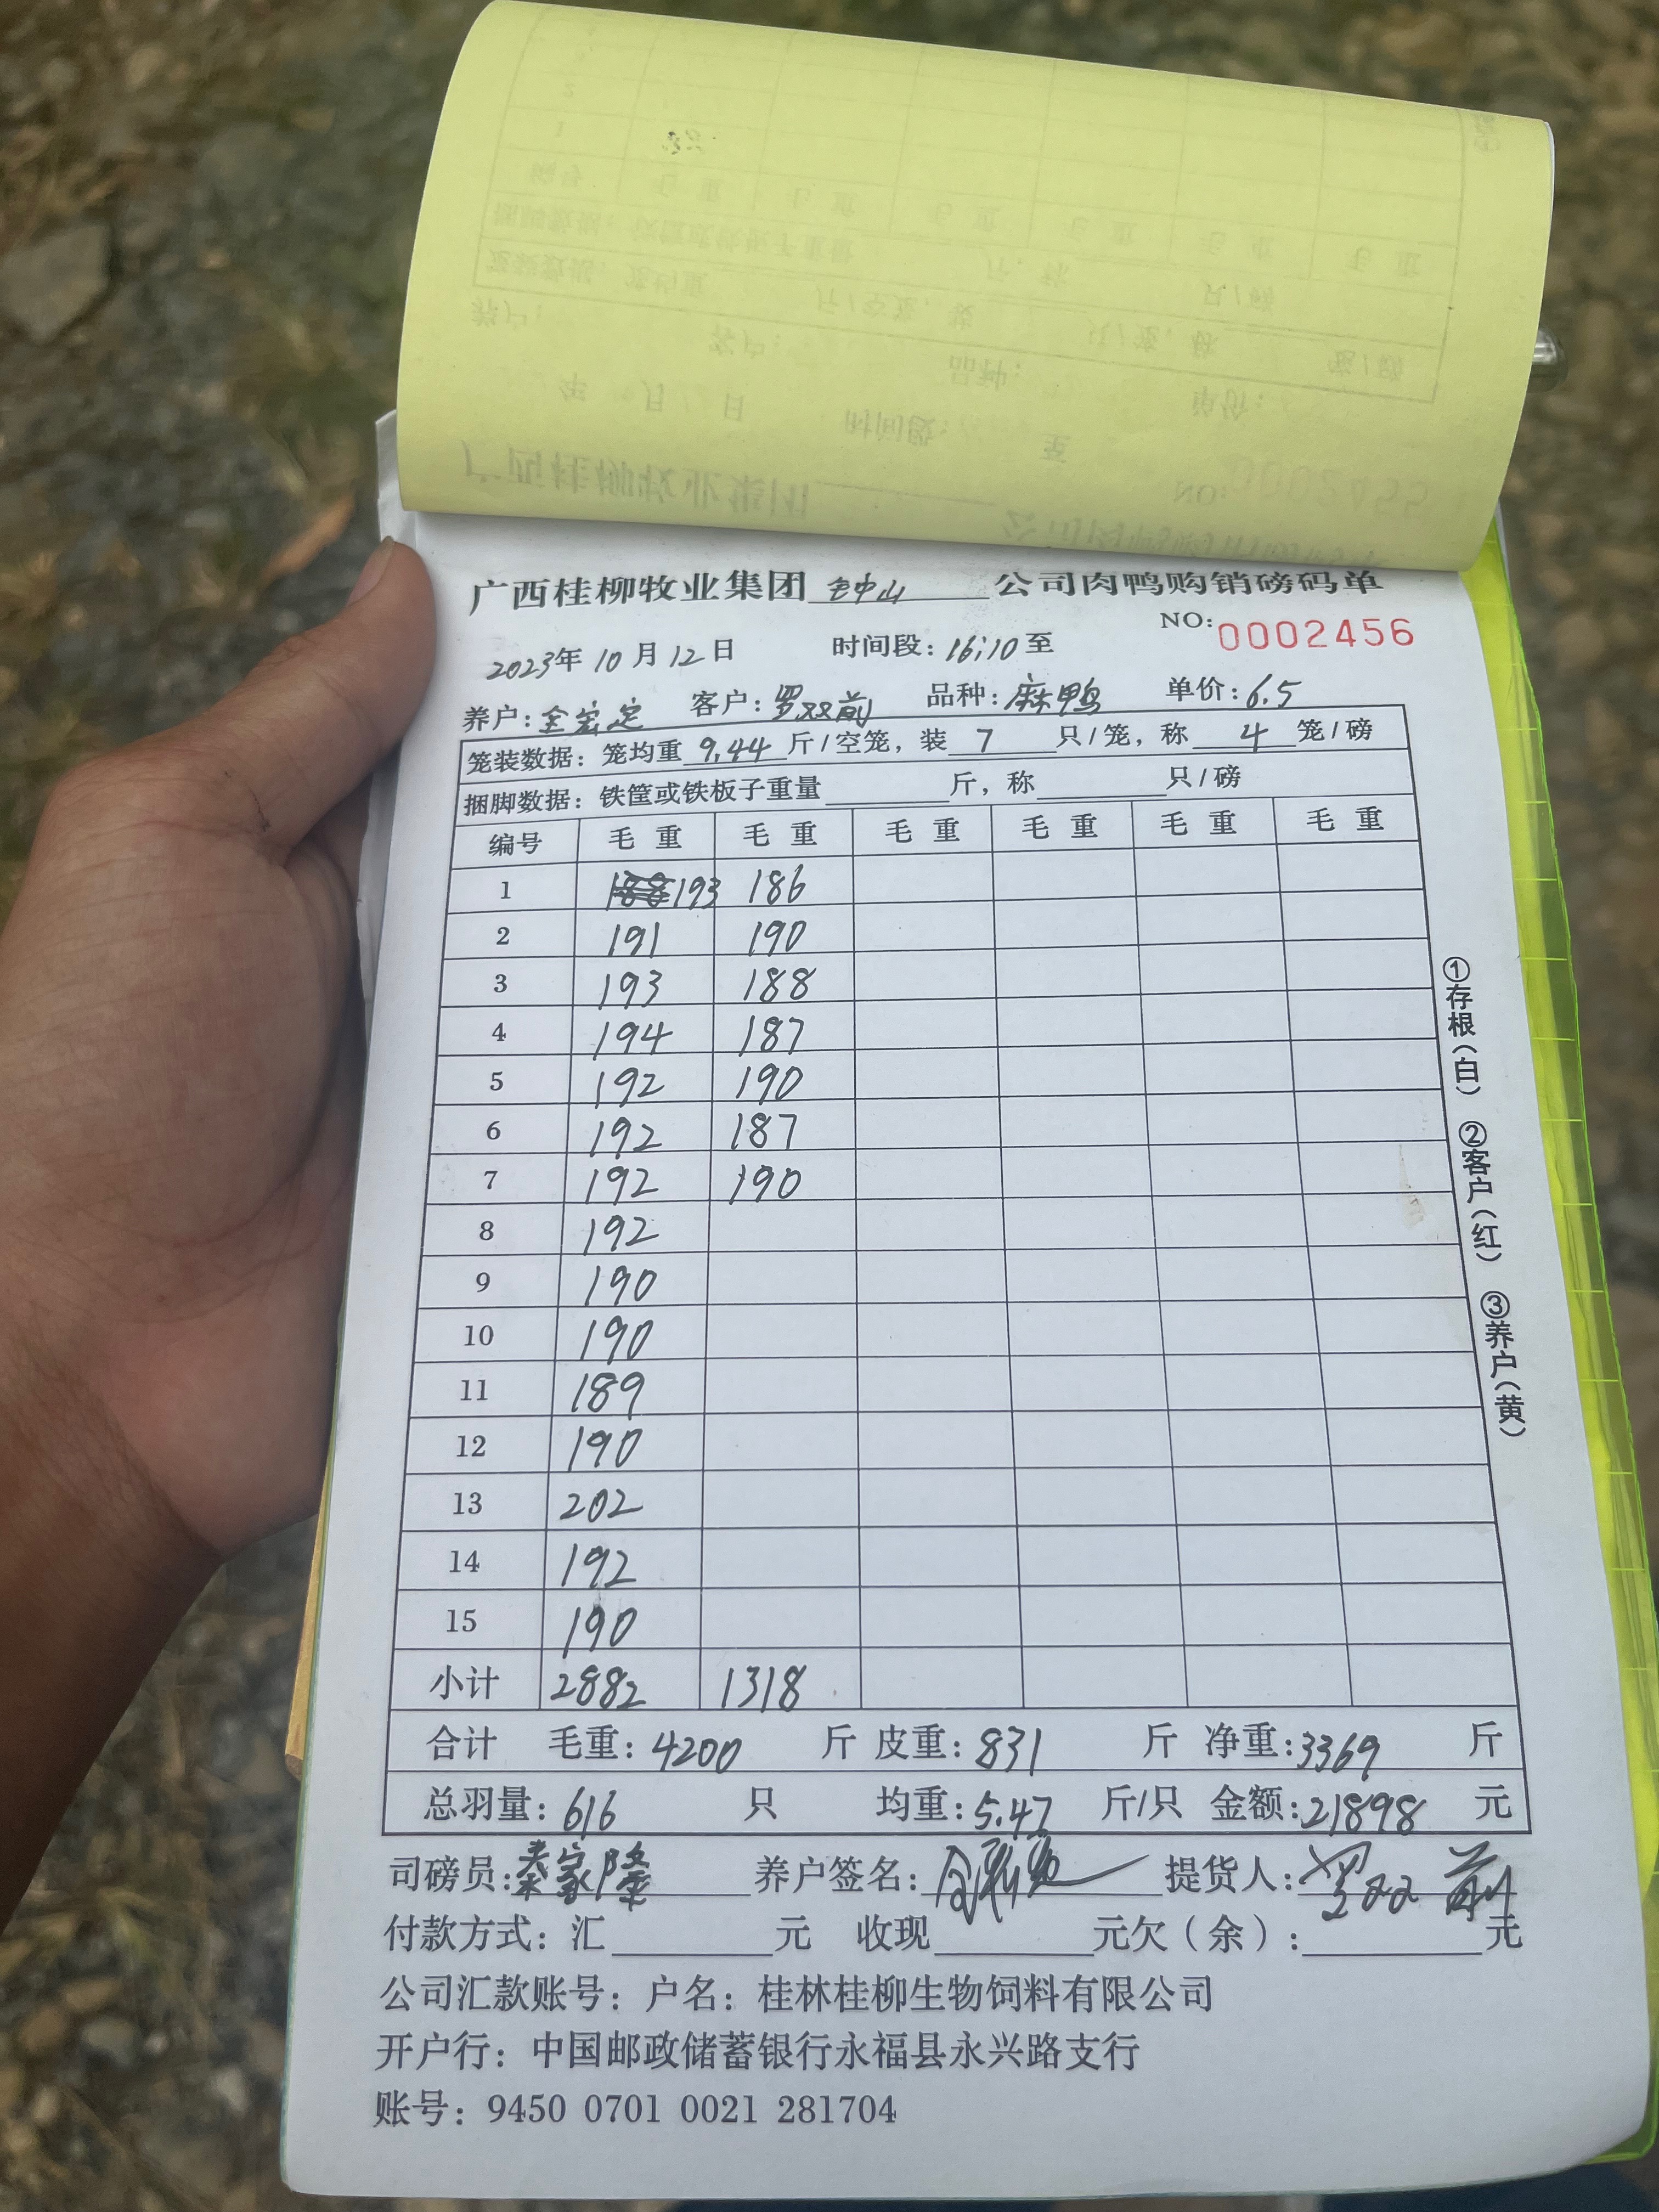 广西桂柳牧业集团 公司肉鸭购销磅码单
NO: 0002456
2023年10月12日 时间段: 16:10至
养户: 全宏定 客户: 罗双前 品种: 麻鸭 单价: 6.5
笼装数据: 笼均重 9.44 斤/空笼, 装 7 只/笼, 称 4 笼/磅
捆脚数据: 铁筐或铁板子重量 斤, 称 只/磅
编号 毛重 毛重 毛重 毛重 毛重 毛重
1 193 186
2 191 190
3 193 188
4 194 187
5 192 190
6 192 187
7 192 190
8 192
9 190
10 190
11 189
12 190
13 202
14 192
15 190
小计 2882 1318
合计 毛重: 4200 斤 皮重: 831 斤 净重: 3369 斤
总羽量: 616 只 均重: 5.47 斤/只 金额: 21898 元
司磅员: 秦家隆 养户签名: 提货人: 罗双前
付款方式: 汇 元 收现 元欠(余): 元
公司汇款账号: 户名: 桂林桂柳生物饲料有限公司
开户行: 中国邮政储蓄银行永福县永兴路支行
账号: 9450 0701 0021 281704
①存根(白) ②客户(红) ③养户(黄)